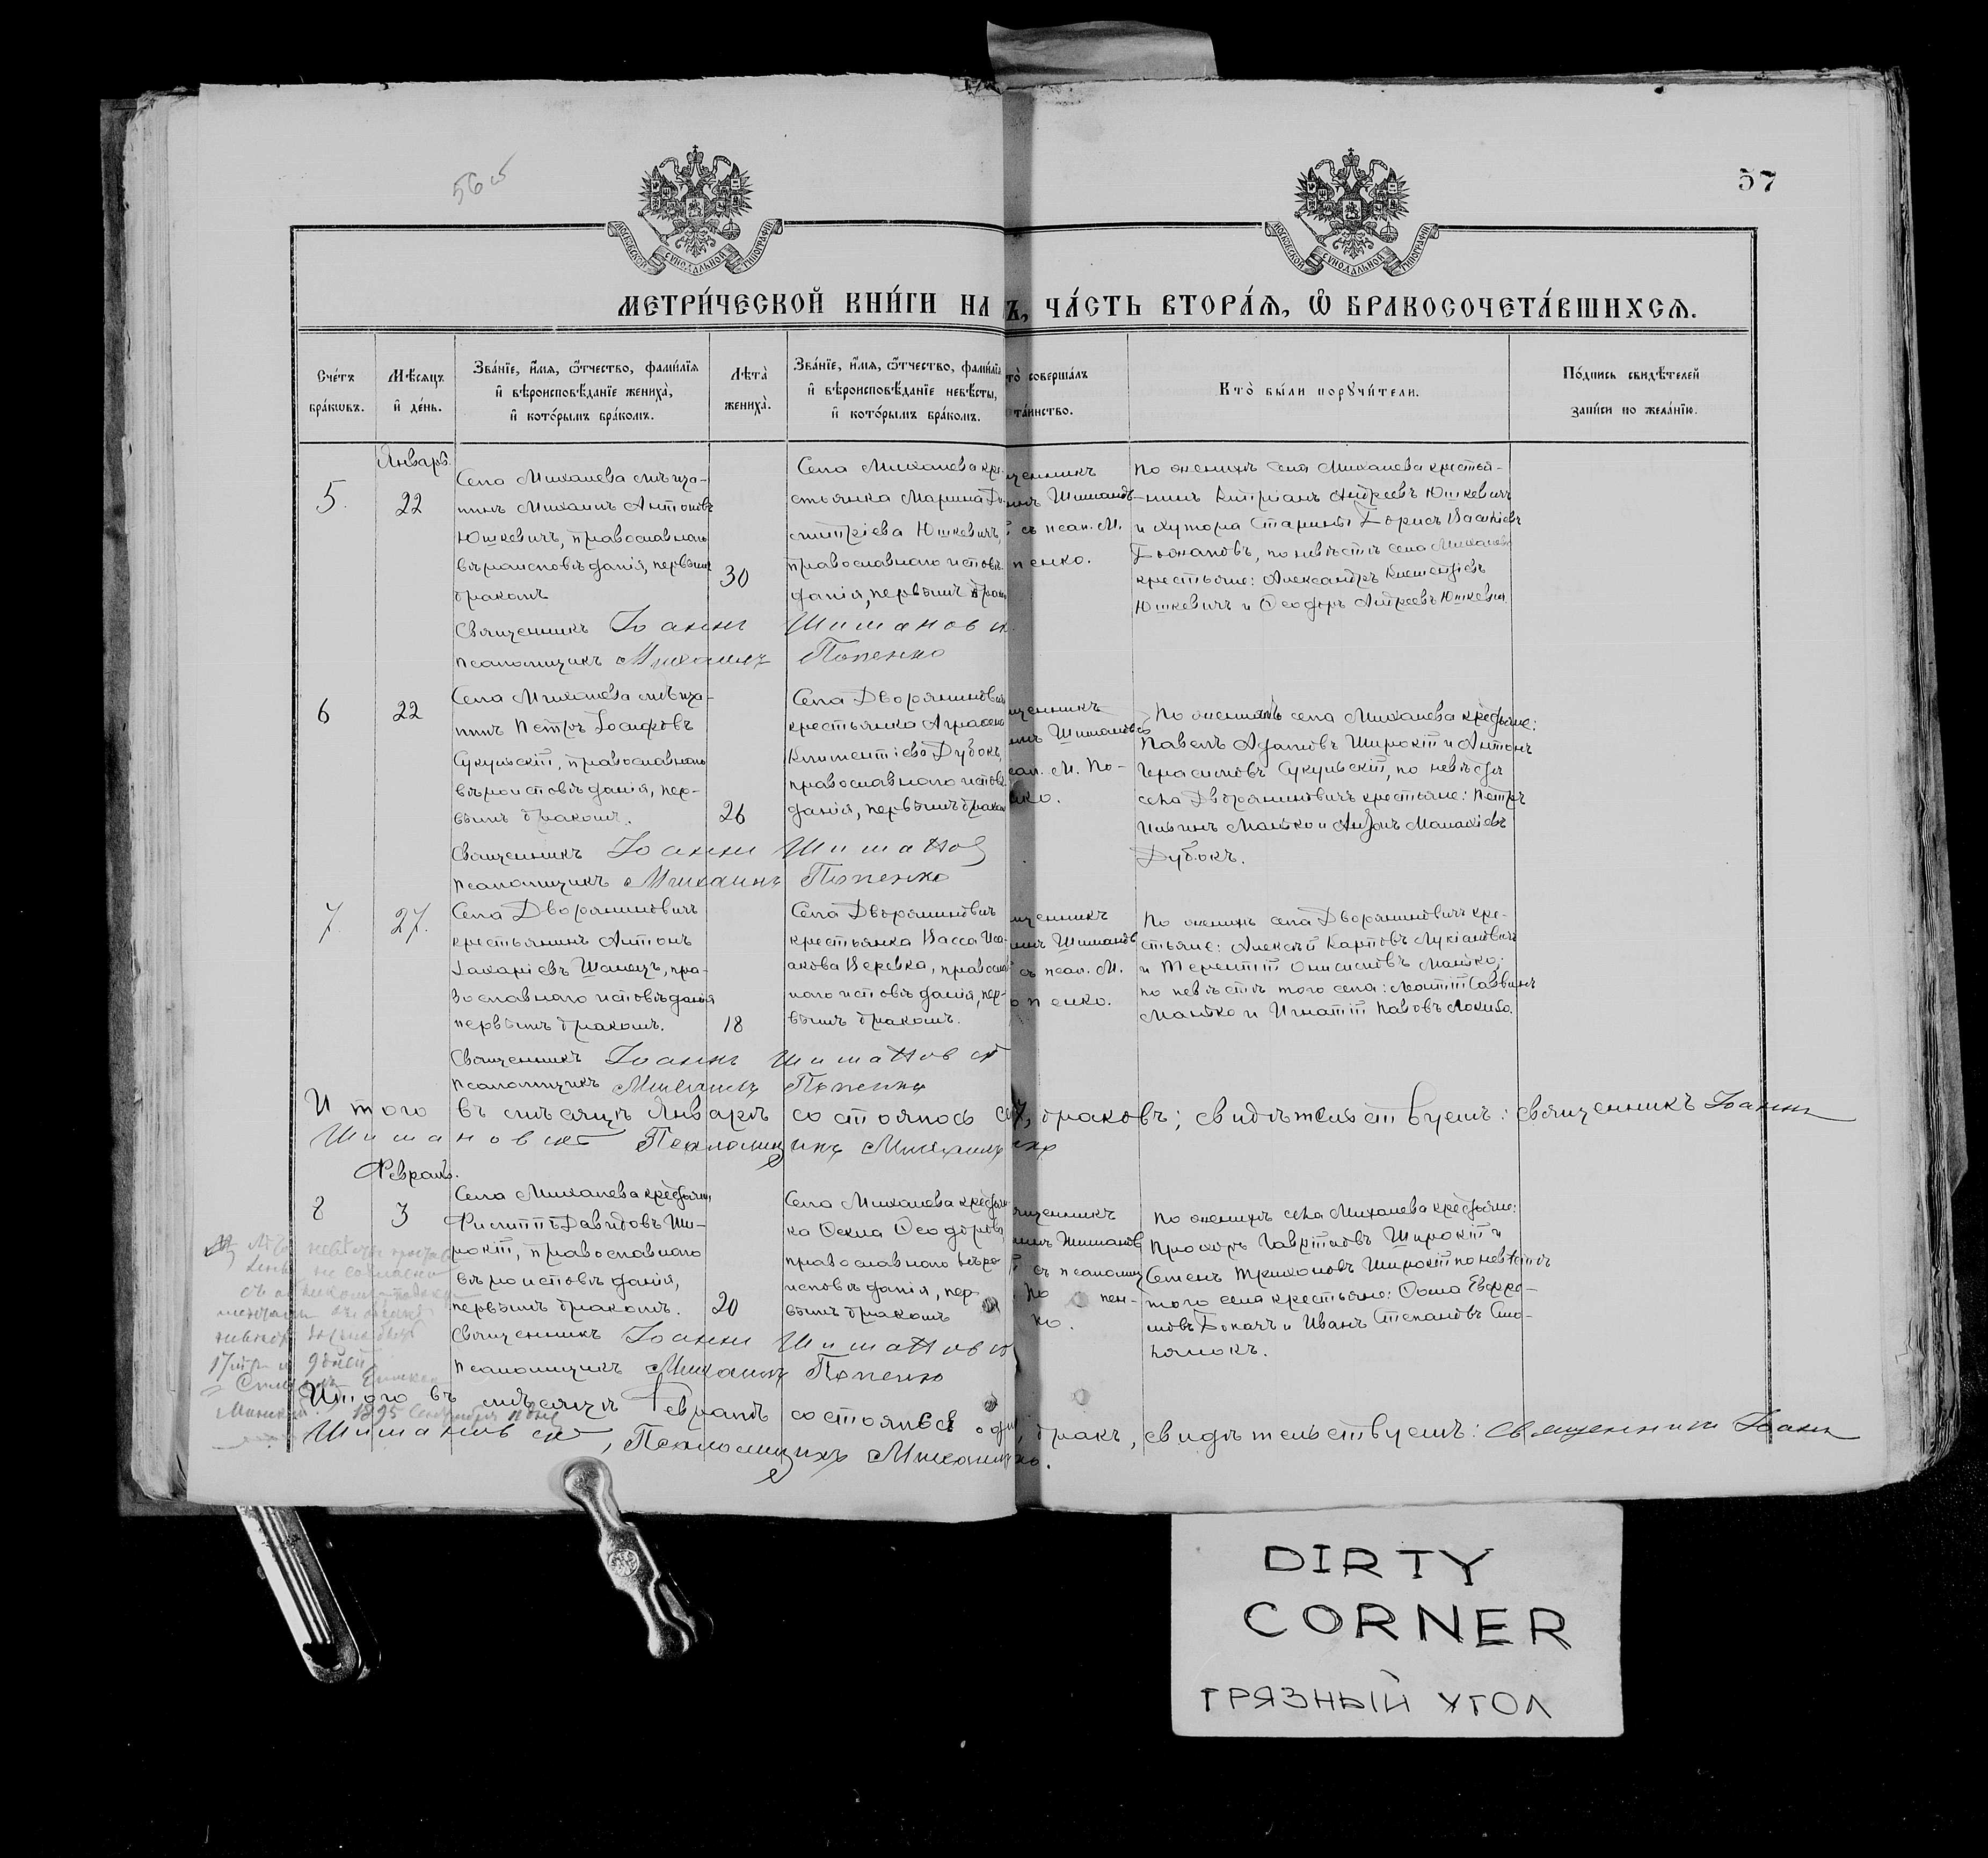 56 об
57
МОСКОВСКОЙ СУНОДАЛЬНОЙ ТИПОГРАФІИ
МОСКОВСКОЙ СУНОДАЛЬНОЙ ТИПОГРАФІИ
МЕТРИ́ЧЕСКОЙ КНИ́ГИ НА Ъ, ЧА́СТЬ ВТОРА́Ѧ, Ѽ БРАКОСОЧЕТА́ВШИХСѦ.
Сче́тъ бра́кѡвъ.
Мѣ́сяцъ и҆ де́нь.
Зва́нїе, и҆́мя, ѻ҆́тчество, фами́лїя
и҆ вѣроисповѣ́данїе жениха̀,
и҆ кото́рымъ бра́комъ.
Лѣта̀ жениха̀.
Зва́нїе, и҆́мя, ѻ҆́тчество, фами́лїя
и҆ вѣроисповѣ́данїе невѣ́сты,
и҆ кото́рымъ бра́комъ.
то̀ соверша́лъ
та́инство.
Кто̀ бы́ли порꙋчи́тели.
По́дпись свидѣ́телей
за́писи по жела́нїю.
Январь.
5.
22
Села Михалева мѣща-
нинъ Михаилъ Антоновъ
Юшкевичъ, православнаго
вѣроисповѣданія, первымъ
бракомъ
30
Села Михалева кре-
стьянка Марина Ди-
митріева Юшкевичъ,
православнаго исповѣ-
данія, первымъ брак
щенникъ
нъ Шиманов
съ псал. М.
пенко.
По женихѣ села Михалева крестья-
нинъ Кипріанъ Андреевъ Юшкевичъ
и хутора Старины Борисъ
по невѣстѣ села Михалева
крестьяне: Александръ Климентіевъ
Юшкевичъ и Ѳеодоръ Андреевъ Юшкевич
Священникъ Іоаннъ Шимановск
псаломщикъ Михаилъ Попенко
6
22
Села Михалева мѣща-
нинъ Петръ Іосифовъ
Сукульскій, православнаго
вѣроисповѣданія, пер-
вымъ бракомъ.
26
Села Дворяниновичъ
крестьянка Агрипена
Климентіева Дубокъ,
православнаго исповѣ-
данія, первымъ браком
щенникъ
нъ Шимановс
сал. М. По-
нко.
По женихѣ села Михалева крестьяне:
Павелъ Адамовъ Широкій и Антонъ
Герасимовъ Сукульскій, по невѣстѣ
села Дворяниновичъ крестьяне: Петръ
Ильинъ Манько и Антонъ Малахіевъ
Дубокъ.
Священникъ Іоаннъ Шиманов
псаломщикъ Михаилъ Попенко
7.
27.
Села Дворяниновичъ
крестьянинъ Антонъ
Захаріевъ Шанецъ, пра-
вославнаго исповѣданія
первымъ бракомъ.
18
Села Дворяниновичъ
крестьянка Васса Иса-
акова Веревка, православ
наго исповѣданія, пер-
вымъ бракомъ.
щенникъ
нъ Шиманов
съ псал. М.
опенко.
По женихѣ села Дворяниновичъ кре-
стьяне: Алексѣй Карповъ Лукіановичъ
и Терентій Онисимовъ Манько;
по невѣстѣ того села: Леонтій Саввинъ
Манько и Игнатій Павловъ
Священникъ Іоаннъ Шимановск
псаломщикъ Михаилъ Попенко
Итого въ мѣсяцѣ Январѣ состоялось се браковъ; свидѣтельствуемъ: священникъ Іоаннъ
Шимановскій Псаломщикъ Михаилъ нко
Февраль.
8
3
Села Михалева крестьянинъ
Филиппъ Давидовъ Ши-
рокій, православнаго
вѣроисповѣданія,
первымъ бракомъ.
20
Села Михалева крестьян-
ка Ѳекла Ѳеодорова
православнаго вѣро-
исповѣданія, пер-
вымъ бракомъ
щенникъ
нъ Шиманов
съ псаломщ
По пен-
ко.
По женихѣ села Михалева крестьяне:
Прохоръ Гавриловъ Широкій и
Семенъ Трихоновъ Широкій по невѣстѣ
того села крестьяне: Ѳома Евфре-
мовъ Бокачъ и Иванъ Степановъ
Священникъ Іоаннъ Шимановск
псаломщикъ Михаилъ Попенко
17 9 дней
1895 Сентября
Итого въ мѣсяцѣ Февралѣ состоялся оди бракъ, свидѣтельствуемъ: Священникъ Іоанн
Шимановскій, Псаломщикъ Михаилъ ко.
DIRTY
CORNER
ГРЯЗНЫЙ УГОЛ